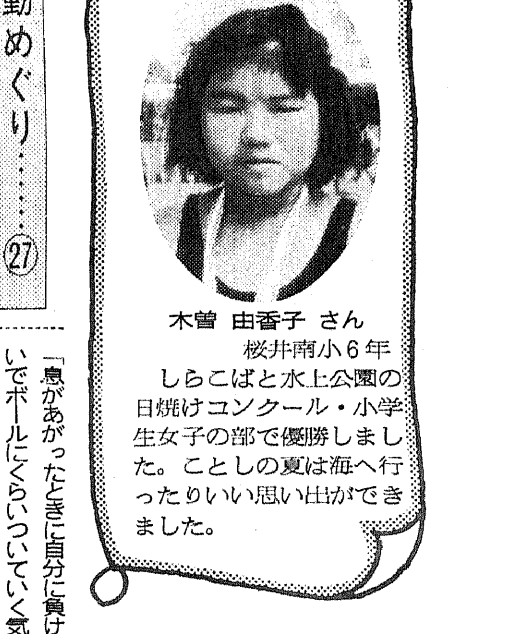 木曽 由香子 さん
桜井南小6年
しらこばと水上公園の
日焼けコンクール・小学
生女子の部で優勝しまし
た。ことしの夏は海へ行
ったりいい思い出ができ
ました。
勤めぐり………㉗
「息があがったときに自分に負け
いでボールにくらいついていく気